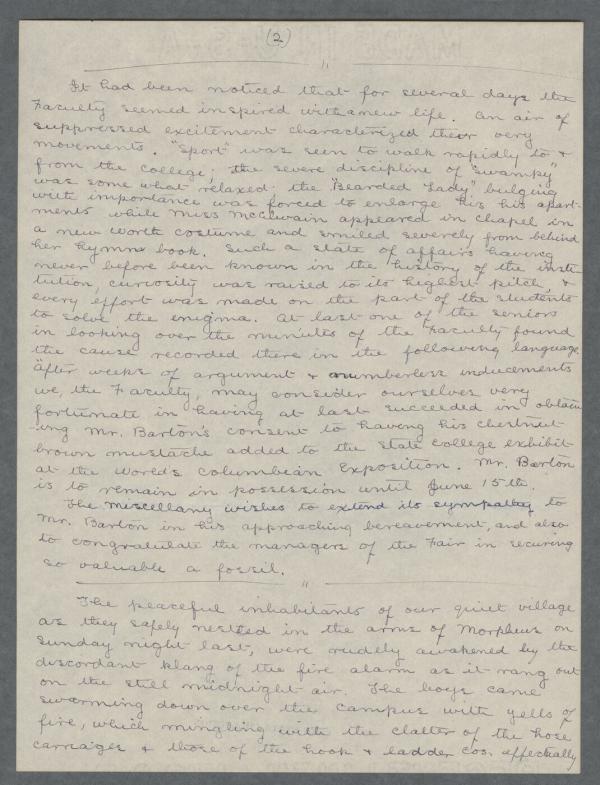 (2)
It had been noticed that for several days the
Faculty seemed inspired with a new life. An air of
suppressed excitement characterized their very
movements. "Sport" was seen to walk rapidly to +
from the college; the severe discipline of "Swampy"
was some what relaxed; the "Bearded Lady" bulging
with importance was forced to enlarge his his apart-
ments while Miss McElwain appeared in chapel in
a new Worth costume and smiled severely from behind
her hymn book. Such a state of affairs having
never before been known in the history of the insti-
tution, curiosity was raised to its highest pitch, +
every effort was made on the part of the students
to solve the enigma. At last one of the seniors
in looking over the minutes of the Faculty found
the cause recorded there in the following language.
"After weeks of argument + numberless inducements
we, the Faculty, may consider ourselves very
fortunate in having at last succeeded in obtain
-ing Mr. Barton's consent to having his chestnut
brown mustache added to the State College exhibit
at the World's Columbian Exposition. Mr. Barton
is to remain in possession until June 15th.
The Miscellany wishes to extend its sympathy to
Mr. Barton in his approaching bereavement, and also
to congratulate the managers of the Fair in securing
so valuable a fossil.
The peaceful inhabitants of our quiet village
as they safely nestled in the arms of Morpheus on
Sunday night last, were rudely awakened by the
discordant klang of the fire alarm as it rang out
on the still midnight air. The boys came
swarming down over the campus with yells of
fire, which mingling with the clatter of the hose
carriages + those of the hook + ladder cos. effectually